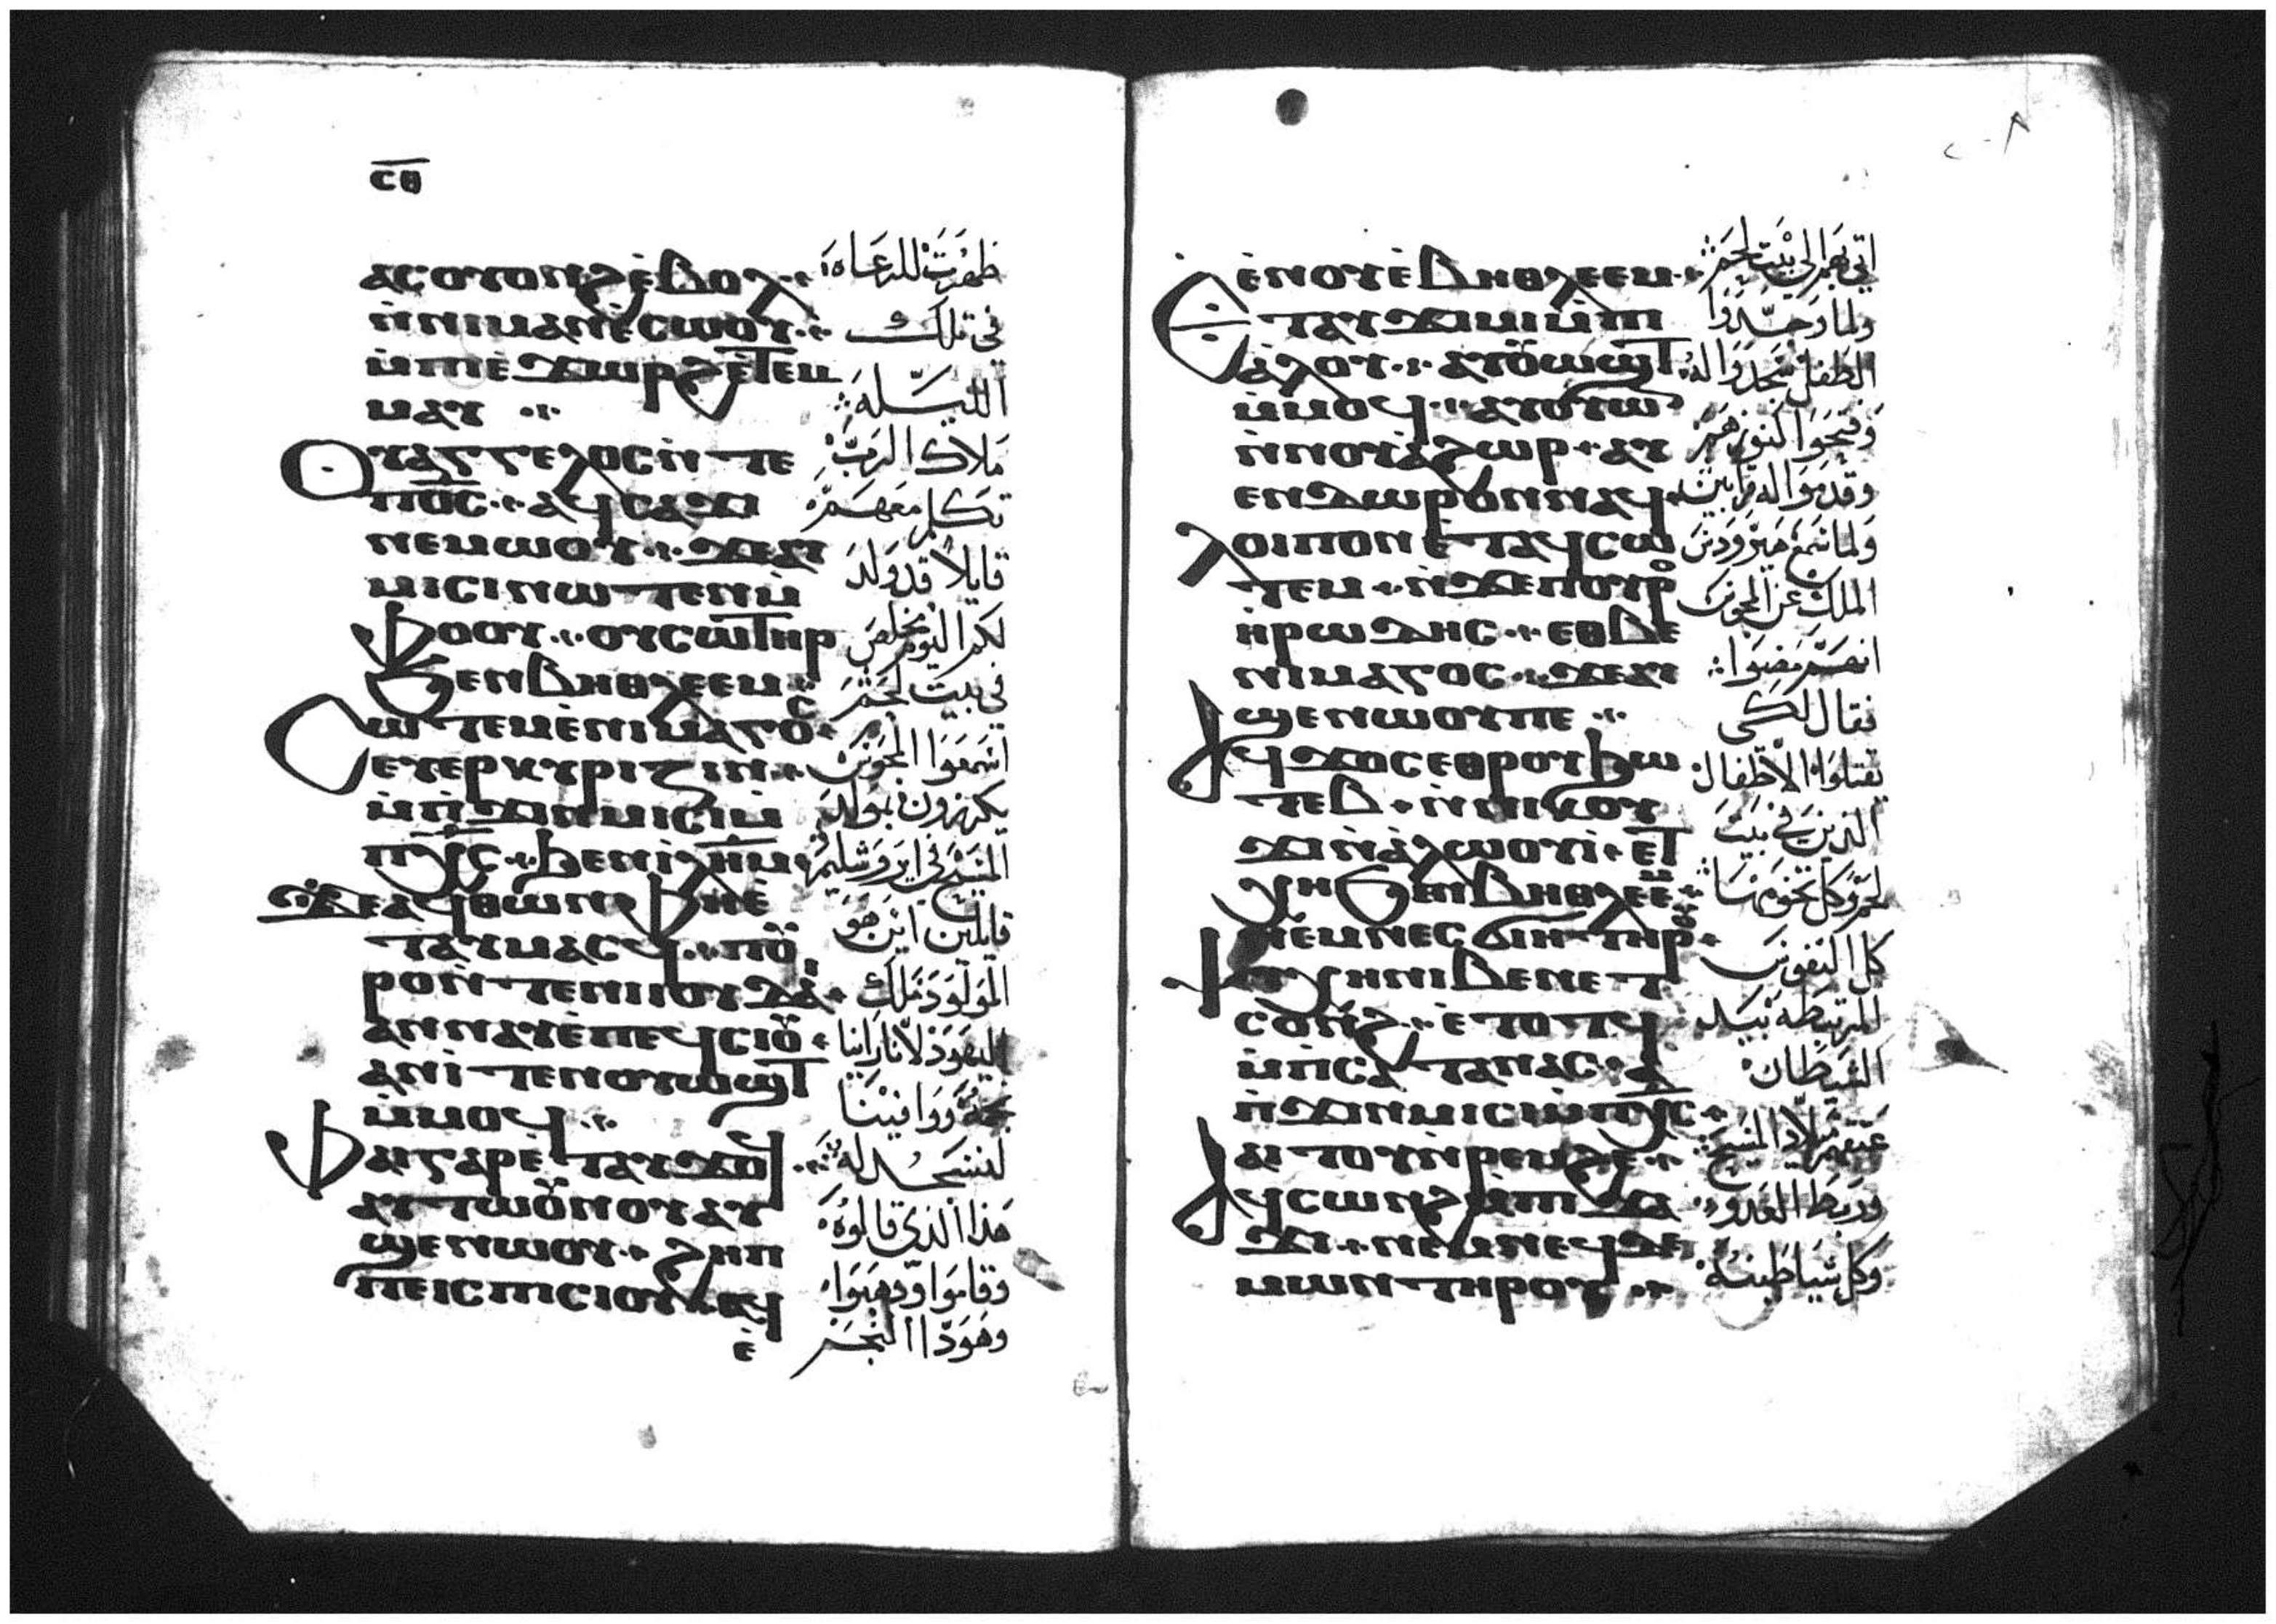 ⲥⲑ
ⲁⲥⲟⲩⲟⲛϩ ⲉ̀ⲃⲟⲗ
ⲛ̀ⲛⲓⲙⲁⲛⲉ̀ⲥⲱⲟⲩ
ⲙ̀ⲡⲓⲉ̀ϫⲱⲣϩ ⲉ̀ⲧⲉⲙ
ⲙⲁⲩ
ⲟⲩⲁⲅⲅⲉⲗⲟⲥ ⲛ̀ⲧⲉ
ⲡⲟ̅ⲥ̅ ⲁϥⲥⲁϫⲓ
ⲛⲉⲙⲱⲟⲩ ϫⲉⲁⲩ
ⲙⲓⲥⲓ ⲛⲱⲧⲉⲛ ⲙ̀
ⲫⲟⲟⲩ ⲟⲩⲥⲱⲧⲏⲣ
ϧⲉⲛ ⲃⲏⲑⲗⲉⲉⲙ
ⲥⲱⲧⲉⲙ ⲉ̀ⲛⲓⲙⲁⲅⲟⲥ
ⲉⲩⲉⲣⲕⲩⲣⲓⲍⲓⲛ
ⲙ̀ⲡ̀ϫⲓⲛⲙⲓⲥⲓ ⲙ̀
ⲡⲭ̅ⲥ̅ ϧⲉⲛ ⲓ̅ⲗ̅ⲏ̅ⲙ̅
ϫⲉⲁϥⲑⲱⲛ ⲫⲏⲉ̀
ⲧⲁⲩⲙⲁⲥϥ ⲡⲟⲩ
ⲣⲟ ⲛ̀ⲧⲉ ⲛⲓⲓⲟⲩⲇⲁⲓ
ⲁⲛⲛⲁⲩ ⲉ̀ⲡⲉϥⲥⲓⲟⲩ
ⲁⲛⲓ̀ ⲧⲉⲛⲟⲩⲱϣⲧ
ⲙ̀ⲙⲟϥ
ⲫⲁⲓ ⲅⲁⲣ ⲉ̀ⲧⲁⲩϫⲟϥ
ⲁⲩⲧⲱⲟⲩⲛⲟⲩ ⲁⲩ
ϣⲉⲛⲱⲟⲩ ϩⲏⲡ
ⲡⲉ ⲓⲥ ⲡⲓⲥⲓⲟⲩ ⲁϥ
ⲉ̀
ظهرت للرعاه
في تلك
الليله
ملاك الرب
تكلم معهم
قايلا قد ولد
لكم اليوم مخلص
في بيت لحم
اسمعوا المجوس
يكرزون بمولد
المسيح في ايروشليم
قايلين اين هو
المولود ملك
اليهود لاننا راينا
نجمه ووافينا
لنسجد له
هذا الذي قالوه
وقاموا وذهبوا
وهوذا النجم
ⲉ̀ⲛⲟⲩ ⲉ̀ⲃⲏⲑⲗⲉⲉⲙ
ⲉⲧⲁⲩϫⲓⲙⲓ ⲙ̀ⲡⲓ
ⲁ̀ⲗⲟⲩ ⲁⲩⲟⲩⲱϣⲧ
ⲙ̀ⲙⲟϥ ⲁⲩⲟⲩⲱ
ⲛ̀ⲛⲟⲩⲁ̀ϩⲱⲣ ⲁⲩ
ⲉⲛⲇⲱⲣⲟⲛ ⲛⲁϥ
ⲗⲟⲓⲡⲟⲛ ⲉ̀ⲧⲁϥⲥⲱ
ⲧⲉⲙ ⲛ̀ϫⲉⲡⲟⲩⲣⲟ
ⲏ̀ⲣⲱⲇⲏⲥ ⲉⲑⲃⲉ
ⲛⲓⲙⲁⲅⲟⲥ ϫⲉⲁⲩ
ϣⲉⲛⲱⲟⲩ ⲡⲉ
ⲁϥϫⲟⲥ ⲉⲑⲣⲟⲩϧⲱ
ⲧⲉⲃ ⲛ̀ⲛⲓⲕⲟⲩ
ϫⲓ ⲛ̀ⲁ̀ⲗⲱⲟⲩⲓ̀ ⲉⲧ
ⲭⲏ ϧⲉⲛ ⲃⲏⲑⲗⲉⲉⲙ
ⲛⲉⲙ ⲛⲉⲥϭⲓⲏ ⲧⲏⲣⲟⲩ
ⲯⲩⲭⲏ ⲛⲓⲃⲉⲛ ⲉⲧ
ⲥⲟⲛϩ ⲉ̀ⲧⲟⲧϥ
ⲙ̀ⲡⲥⲁⲧⲁⲛⲁⲥ ⲁ̀
ⲡ̀ϫⲓⲛⲙⲓⲥⲓ ⲙ̀ⲡⲭ̅ⲥ̅
ⲁⲓⲧⲟⲩ ⲛ̀ⲣⲉⲙϩⲉ
ⲁϥⲥⲱⲛϩ ⲙ̀ⲡⲓϫⲁ
ϫⲓ ⲛⲉⲙ ⲛⲉϥⲇⲉ
ⲙⲱⲛ ⲧⲏⲣⲟⲩ
اتي بهم الي بيت لحم
ولما وجدوا
الطفل سجدوا له
وفتحوا كنوزهم
وقدموا له قرابين
ولما سمع هيرودس
الملك عن المجوس
انهم مضوا
فقال لكي
يقتلوا الاطفال
الذين في بيت
لحم وكل تخومها
كل النفوس
المرتبطه بيد
الشيطان
عتقهم ميلاد المسيح
وربط العدو
وكل شياطينه